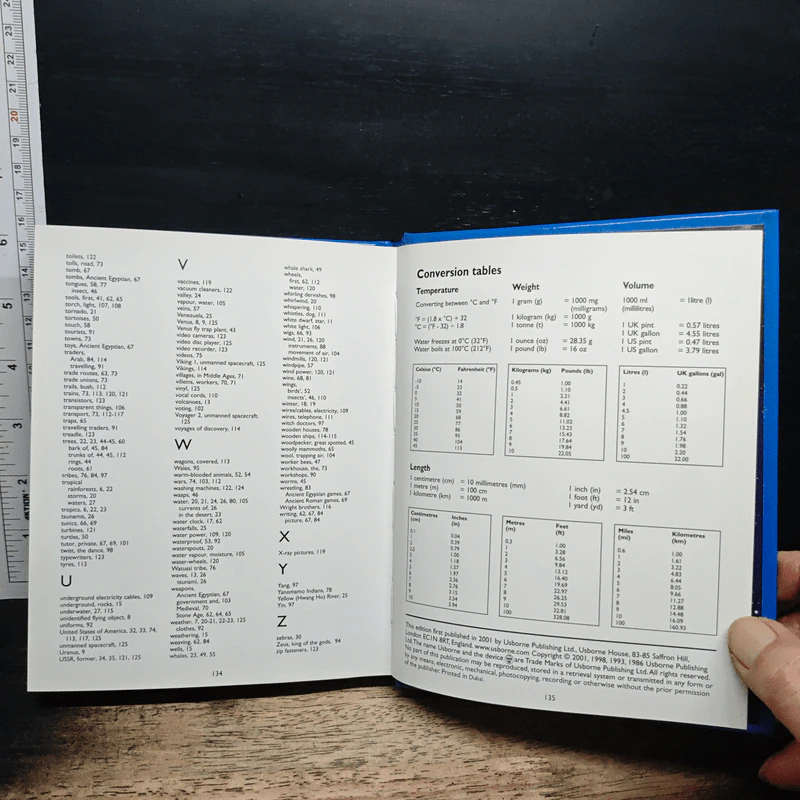 toilets, 122
tolls, road, 73
tomb, 67
tombs, Ancient Egyptian, 67
tongues, 58, 77
insect, 46
tools, first, 41, 62, 65
torch, light, 107, 108
tornado, 21
tortoises, 50
touch, 58
tourists, 91
towns, 73
toys, Ancient Egyptian, 67
traders,
Arab, 84, 114
travelling, 91
trade routes, 63, 73
trade unions, 73
trails, bush, 112
trains, 73, 113, 120, 121
transistors, 123
transparent things, 106
transport, 73, 112-117
traps, 65
travelling traders, 91
treadle, 123
trees, 22, 23, 44-45, 60
bark of, 45, 84
trunks of, 44, 45, 112
rings, 44
roots, 61
tribes, 76, 84, 97
tropical
rainforests, 6, 22
storms, 20
waters, 27
tropics, 6, 22, 23
tsunamis, 26
tunics, 66, 69
turbines, 121
turtles, 50
tutor, private, 67, 69, 101
twist, the dance, 98
typewriter, 123
tyres, 113
U
underground electricity cables, 109
underground, rocks, 15
underwater, 27, 115
unidentified flying object, 8
uniforms, 92
United States of America, 32, 33, 74,
113, 117, 125
unmanned spacecraft, 125
Uranus, 9
USSR, former, 34, 35, 121, 125
V
vaccines, 119
vacuum cleaners, 122
valley, 24
vapour, water, 105
veins, 57
Venezuela, 25
Venus, 8, 9, 125
Venus fly trap plant, 43
video cameras, 123
video disc player, 125
video recorder, 123
videos, 75
Viking 1, unmanned spacecraft, 125
Vikings, 114
villages, in Middle Ages, 71
villeins, workers, 70, 71
vinyl, 125
vocal cords, 110
volcanoes, 13
voting, 102
Voyager 2, unmanned spacecraft,
125
voyages of discovery, 114
W
wagons, covered, 113
Wales, 95
warm-blooded animals, 52, 54
wars, 74, 103, 112
washing machines, 122, 124
wasps, 46
water, 20, 21, 24, 26, 80, 105
currents of, 26
in the desert, 23
water clock, 17, 62
waterfalls, 25
water power, 109, 120
waterproof, 53, 92
waterspouts, 20
water vapour, moisture, 105
water-wheels, 120
Watussi tribe, 76
waves, 13, 26
tsunami, 26
weapons,
Ancient Egyptian, 67
government and, 103
Medieval, 70
Stone Age, 62, 64, 65
weather, 7, 20-21, 22-23, 125
clothes, 92
weathering, 15
weaving, 62, 84
wells, 15
whales, 23, 49, 55
whale shark, 49
wheels,
first, 62, 112
water, 120
whirling dervishes, 98
whirlwind, 20
whispering, 110
whistles, dog, 111
white dwarf, star, 11
white light, 106
wigs, 66, 93
wind, 21, 26, 120
instruments, 88
movement of air, 104
windmills, 120, 121
windpipe, 57
wind power, 120, 121
wine, 68, 81
wings,
birds', 52
insects', 46, 110
winter, 18, 19
wires/cables, electricity, 109
wires, telephone, 111
witch doctors, 97
wooden houses, 78
wooden ships, 114-115
woodpecker, great spotted, 45
woolly mammoths, 65
wool, trapping air, 104
worker bees, 47
workhouse, the, 73
workshops, 90
worms, 45
wrestling, 83
Ancient Egyptian games, 67
Ancient Roman games, 69
Wright brothers, 116
writing, 62, 67, 84
picture, 67, 84
X
X-ray pictures, 119
Y
Yang, 97
Yanomamo Indians, 78
Yellow (Hwang Ho) River, 25
Yin, 97
Z
zebras, 30
Zeus, king of the gods, 94
zip fasteners, 123
134
Conversion tables
Temperature
Converting between °C and °F
°F = (1.8 x °C) + 32
°C = (°F - 32) ÷ 1.8
Water freezes at 0°C (32°F)
Water boils at 100°C (212°F)
Weight
1 gram (g) = 1000 mg
(milligrams)
1 kilogram (kg) = 1000 g
1 tonne (t) = 1000 kg
1 ounce (oz) = 28.35 g
1 pound (lb) = 16 oz
Volume
1000 ml = 1litre (l)
(millilitres)
1 UK pint = 0.57 litres
1 UK gallon = 4.55 litres
1 US pint = 0.47 litres
1 US gallon = 3.79 litres
Celsius (°C) Fahrenheit (°F)
-10 14
-5 23
0 32
5 41
10 50
15 59
20 68
25 77
30 86
35 95
40 104
45 113
Kilograms (kg) Pounds (lb)
0.45 1.00
0.5 1.10
1 2.21
2 4.41
3 6.61
4 8.82
5 11.02
6 13.23
7 15.43
8 17.64
9 19.84
10 22.05
Litres (l) UK gallons (gal)
1 0.22
2 0.44
3 0.66
4 0.88
4.5 1.00
5 1.10
6 1.32
7 1.54
8 1.76
9 1.98
10 2.20
100 22.00
Length
1 centimetre (cm) = 10 millimetres (mm)
1 metre (m) = 100 cm
1 kilometre (km) = 1000 m
1 inch (in) = 2.54 cm
1 foot (ft) = 12 in
1 yard (yd) = 3 ft
Centimetres Inches
(cm) (in)
0.1 0.04
1 0.39
2 0.79
2.5 1.00
3 1.18
4 1.57
5 1.97
6 2.36
7 2.76
8 3.15
9 3.54
10 3.94
Metres Feet
(m) (ft)
0.3 1.00
1 3.28
2 6.56
3 9.84
4 13.12
5 16.40
6 19.69
7 22.97
8 26.25
9 29.53
10 32.81
100 328.08
Miles Kilometres
(mi) (km)
0.6 1.00
1 1.61
2 3.22
3 4.83
4 6.44
5 8.05
6 9.66
7 11.27
8 12.88
9 14.48
10 16.09
100 160.93
This edition first published in 2001 by Usborne Publishing Ltd., Usborne House, 83-85 Saffron Hill,
London EC1N 8RT, England. www.usborne.com Copyright © 2001, 1998, 1993, 1986 Usborne Publishing
Ltd. The name Usborne and the device are Trade Marks of Usborne Publishing Ltd. All rights reserved.
No part of this publication may be reproduced, stored in a retrieval system or transmitted in any form or
by any means, electronic, mechanical, photocopying, recording or otherwise without the prior permission
of the publisher. Printed in Dubai.
135